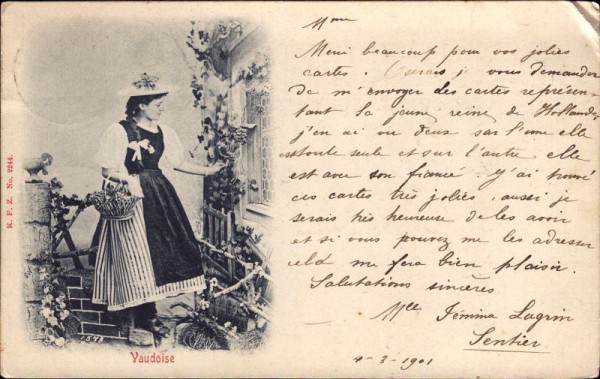 K. F. Z. No. 2244.
1598
Vaudoise
Mme
Merci beaucoup pour vos jolies
cartes. Oserais je vous demander
de m'envoyer des cartes représen-
tant la jeune reine de Hollande,
j'en ai vu deux sur l'une elle
est toute seule et sur l'autre elle
est avec son fiancé. J'ai trouvé
ces cartes très jolies, aussi je
serais très heureuse de les avoir
et si vous pouvez me les adresser
cela me fera bien plaisir.
Salutations sincères
Mlle Jémima Lugrin
Sentier
4-3-1901